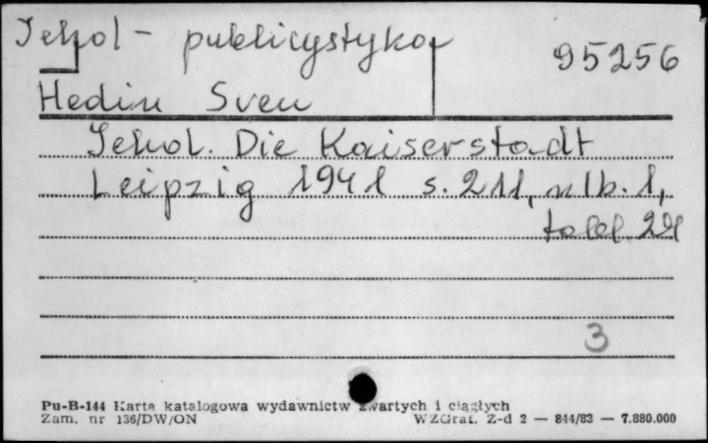 Jehol - publicystyka
95256
Hedin Sven
Jehol. Die Kaiserstadt
Leipzig 1941 s. 211, nlb. 1,
tabl.
3
Pu-B-144 Karta katalogowa wydawnictw zwartych i ciągłych
Zam. nr 136/DW/ON WZGraf. Z-d 2 — 844/83 — 7.880.000